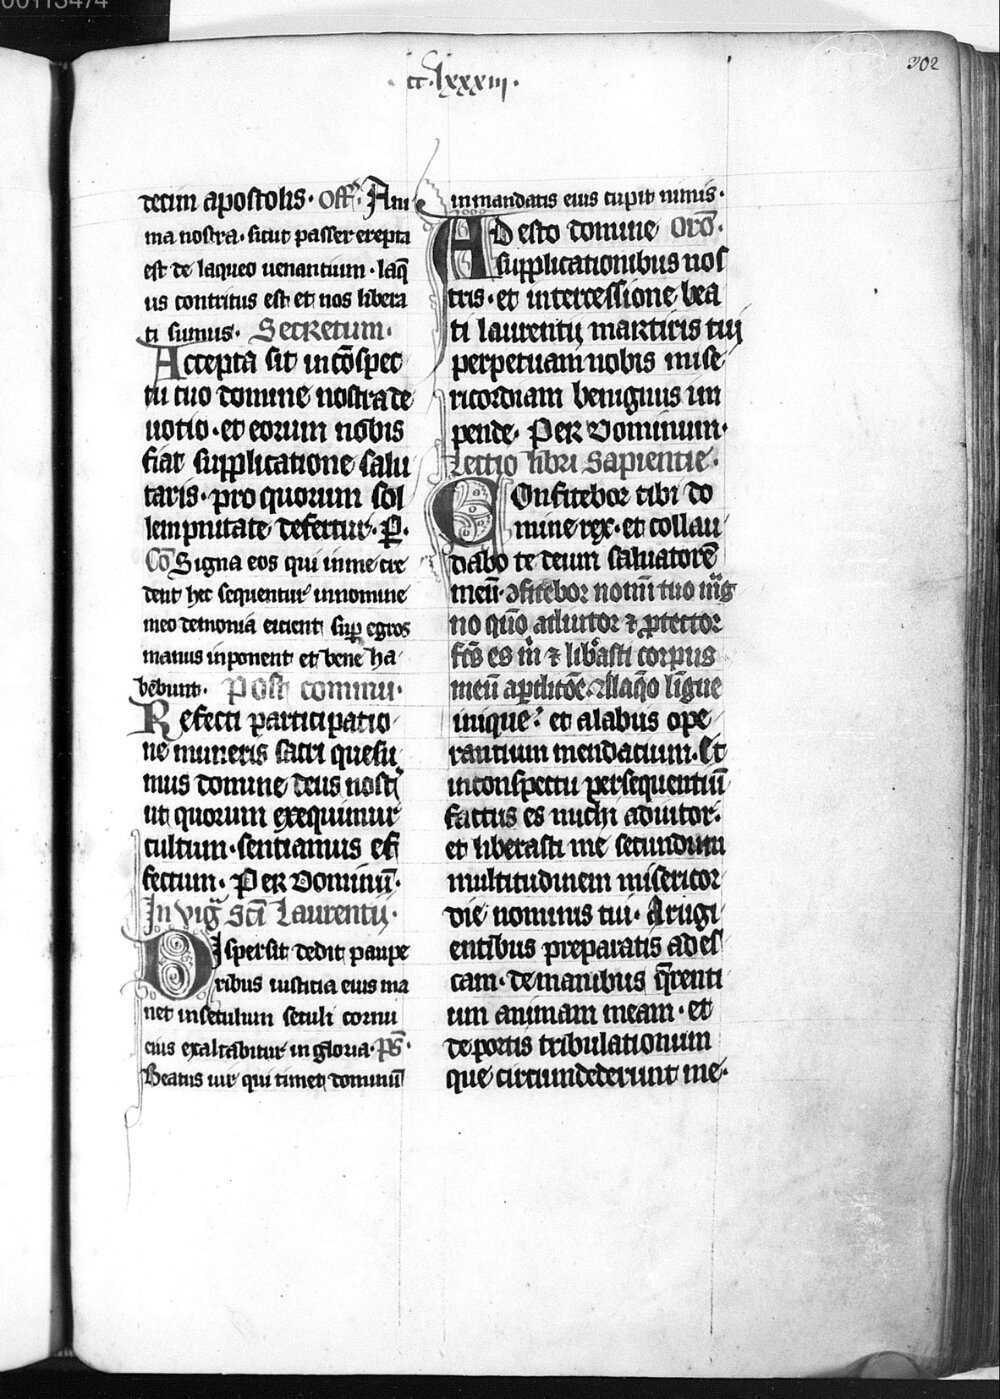 00113474
302
·cc·lxxxiii·
tecim apostolis· Off̄· Ani
ma nostra· sicut passer erepta
est de laqueo uenantium· laq̄
us contritus est et nos libera
ti sumus· Secretum·
Accepta sit in cōspec
tu tuo domine nostra de
uotio· et eorum nobis
fiat supplicatione salu
taris· pro quorum sol
lempnitate defertur· P̲·
Cō Signa eos qui in me cre
dent hec sequentur in nomine
meo demonia eicient sup̱ egros
manus inponent et bene ha
bebunt· Post commu·
Refecti participatio
ne muneris sacri quesu
mus domine deus nost̄
ut quorum exequimur
cultum· sentiamus ef
fectum· Per Dominū·
In viḡ sc̄i Laurentij·
Dispersit dedit paupe
ribus iusticia eius ma
net in seculum seculi cornu
eius exaltabitur in gloria· p̄s·
Beatus uir qui timet dominū
in mandatis eius cupit nimis·
Adesto domine Orō·
supplicationibus nos
tris· et intercessione bea
ti laurentij martiris tui
perpetuam nobis mise
ricordiam benignus im
pende· Per Dominum·
Lectio libri Sapientie·
Confitebor tibi do
mine rex· et collau
dabo te deum saluatorē
meū· ꝯfitebor nomī tuo
no qm̄o adiutor ⁊ ꝓtector
fc̄s es m̄ ⁊ libāsti corpus
meū a ꝑditiōe· li̅gue
inique· et a labiis ope
rantium mendacium· Et
in conspectu persequentiū
factus es michi adiutor·
et liberasti me secundum
multitudinem misericor
die nominis tui· A rugi
entibus preparatis ad es
cam· de manibus q̄renti
um animam meam· et
de portis tribulationum
que circumdederunt me·